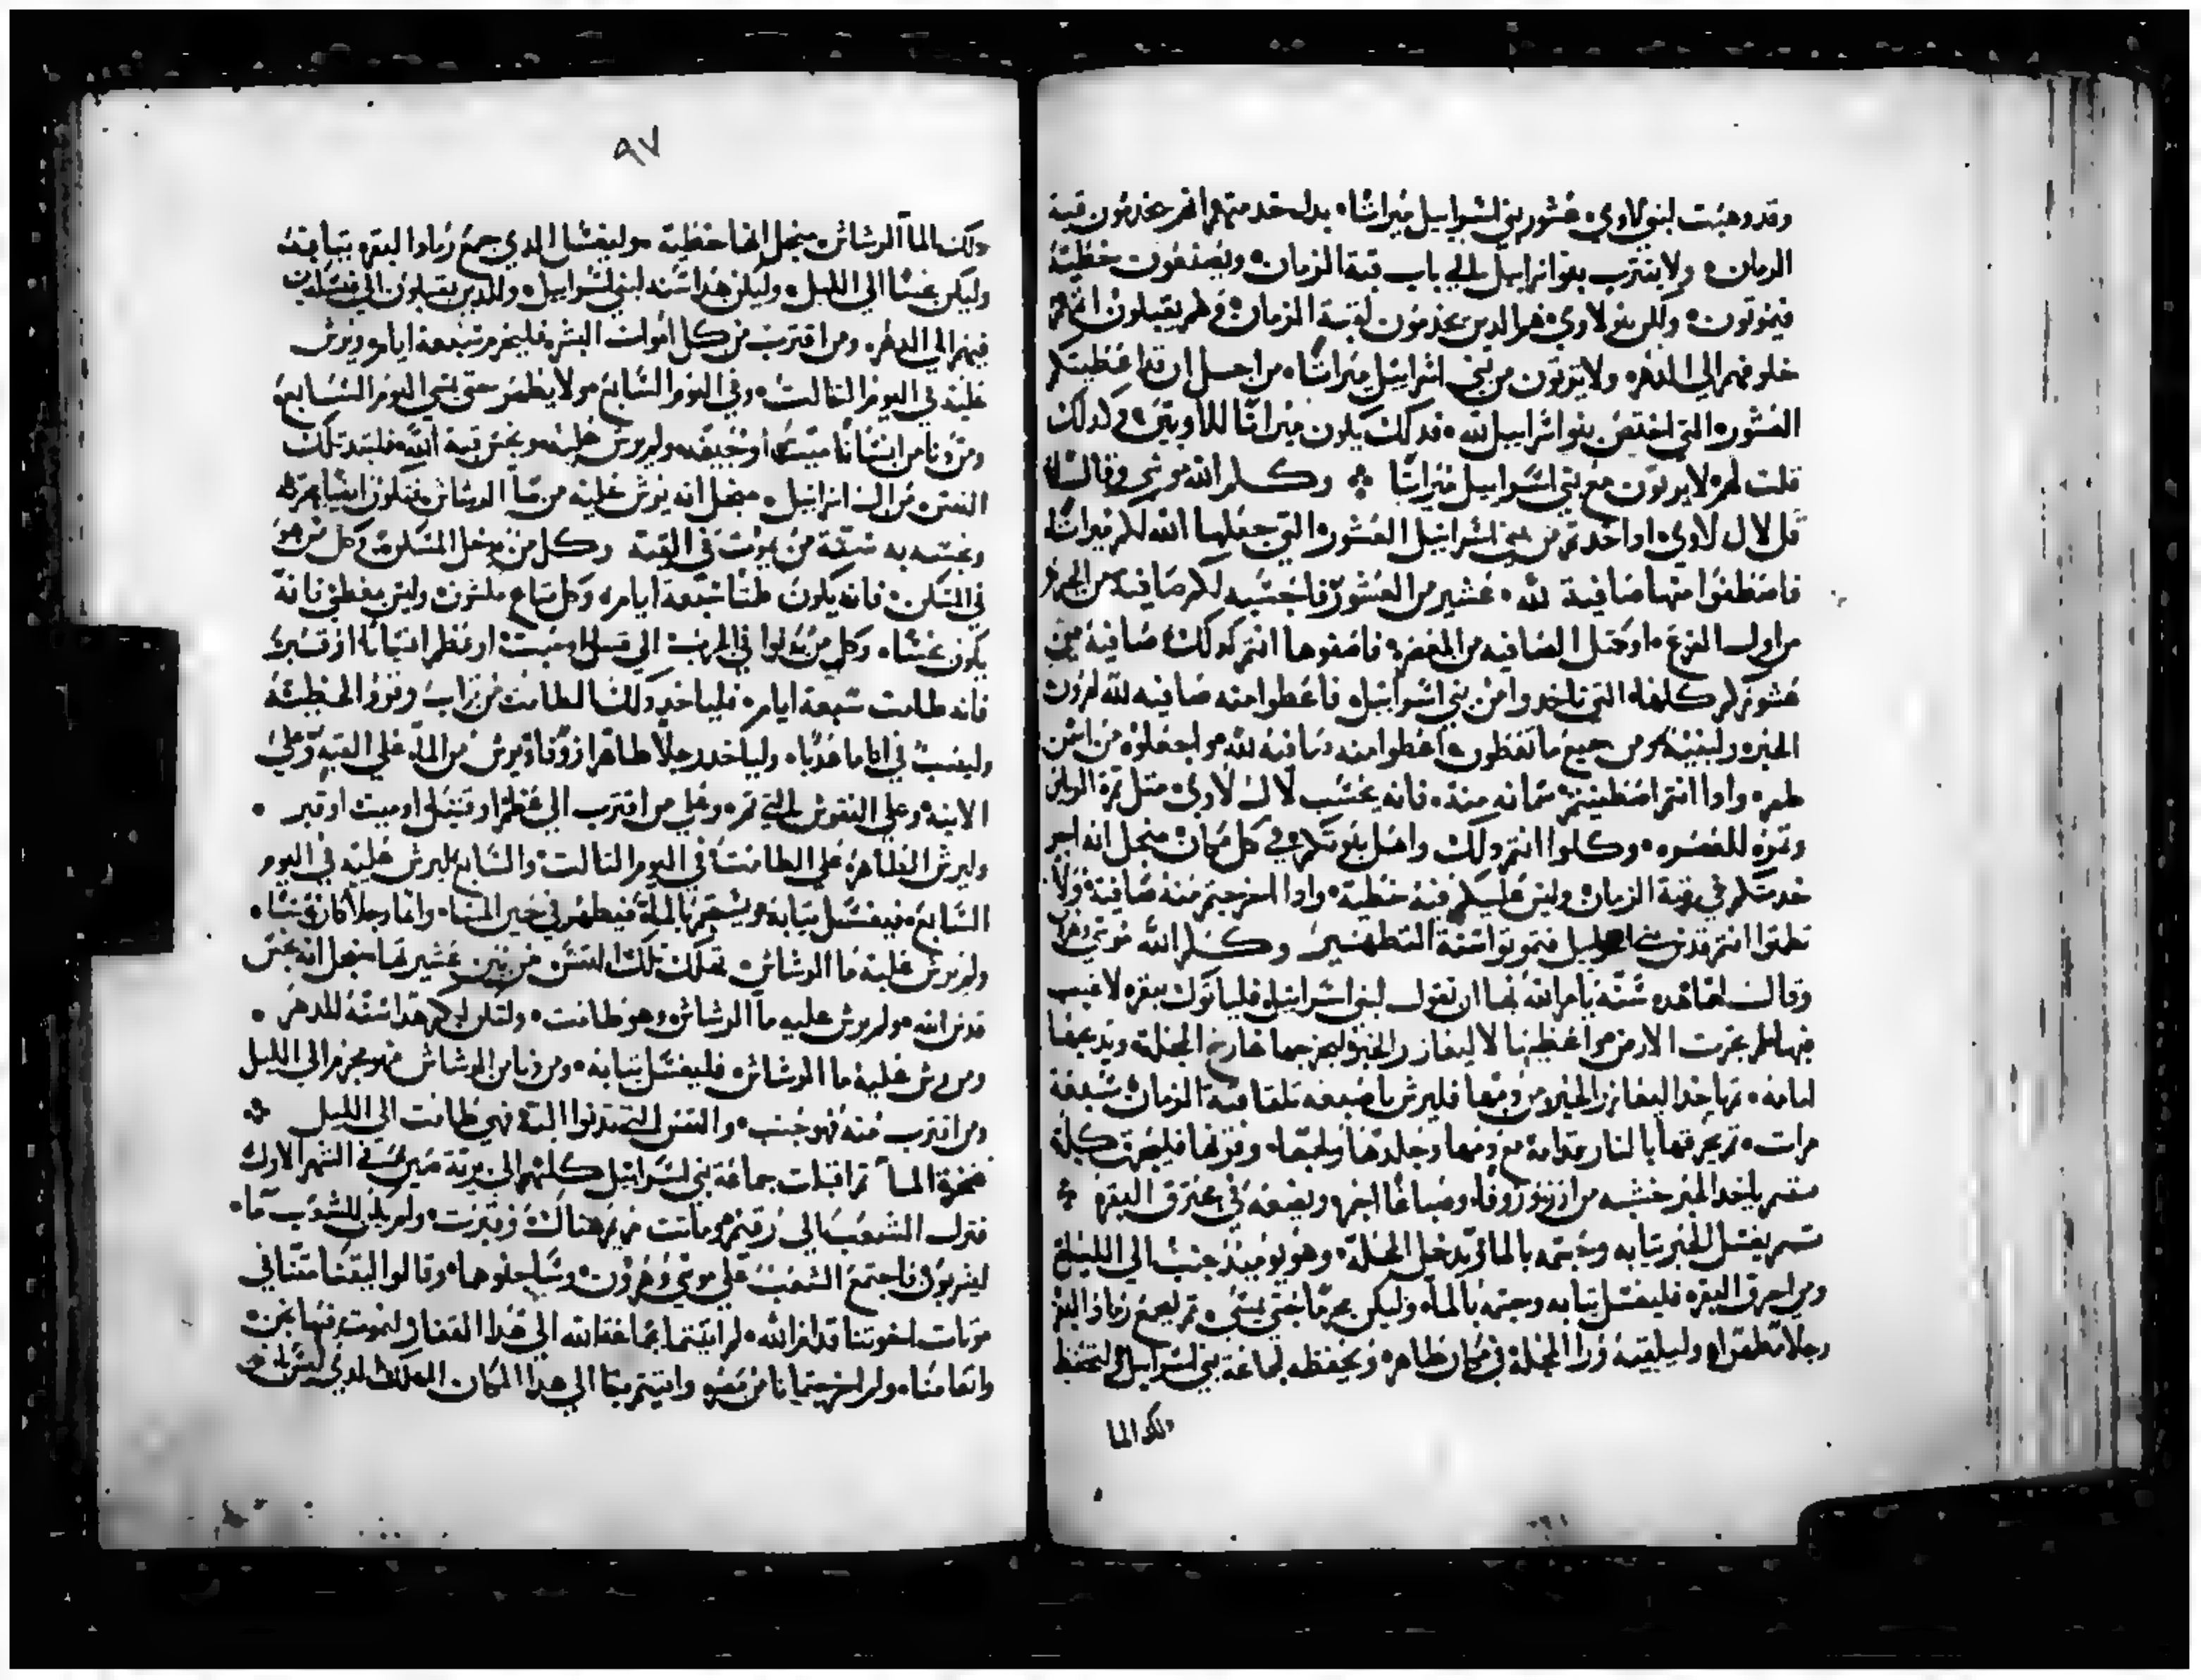 وقد وهبت لبني لاوي عشور بني اسراييل ميراثا بدل خدمتهم انهم يخدمون قبة
الزمان ولا يقترب بنوا اسراييل الي باب قبة الزمان ويصنعون خطية
فيموتون ولكن بنو لاوي هم الدين يخدمون لقبة الزمان وهم يقبلون
الي الدهر ولا يرتون من بني اسراييل ميراثا من اجل ان قد اعطيتكم
العشور التي اختص بنوا اسراييل لله فدلك يكون ميراثا للاويين ولدلك
قلت لهم لا يرتون مع بني اسراييل ميراثا وكلم الله موسي وقال له
قل لال لاوي ادا اخدتم من بني اسراييل العشور التي جعلها الله لكم ميراثا
فاصطفوا منها صافية لله عشير من العشور فاحتسبه لكم صافية من الجرن
من اول القرع او مثل الصافيه من المعصرة فاصفوها انتم كدلك صافية من
عشوركم كلها التي تاخدوا من بني اسراييل فاعطوا منه صافيه لله لهرون
الحبر ومن جميع ما تعطون اعطوا منه صافية لله واجعلوه من
وادا انتم اصطفيتم منه فانه يحتسب لال لاوي مثل تمرة
وتمرة المعصره وكلوا انتم دلك واهل بيوتكم في كل مكان منجل انه اجر
خدمتكم في قبة الزمان وليس عليكم فيه خطية وادا اخرجتم منه صافية ولا
اسراييل فتموتوا سنة التطهير وكلم الله موسي وهرون
وقال لهما هده سنة يامر الله بها ان تقول لبني اسراييل فلياتوك ببقره لا عيب
فيها لم تحرت الارض واعطيها لاليعازر الحبر وليخرجها خارج المحلة ويدبحها
امامه تم ياخد اليعازر الحبر من دمها فليرش باصبعه تلقا قبة الزمان سبعة
مرات تم يحرقها بالنار قدامه مع دمها وجلدها ولحمها وفرتها فليحرق كله
تم ياخد الحبر خشبه من ارز وزوفا وصباغا احمر ويضعه في محترق البقره
تم يغسل الحبر تيابه وجسمه بالما تم يدخل المحلة وهو يوميد جنب الي الليل
ومن احرق البقره فليغسل تيابه وجسمه بالما وليكن محرما حتي يمسي تم ليجمع رماد البقره
رجلا مطهرا وليلقيه ورا المحلة في مكان طاهر ويحفظه لجماعة بني اسراييل ليحفظ
دلك الما
٩٧
دلك الما الرشاش منجل انها خطية وليغسل الدي جمع رماد البقره تيابه
وليكن نجسا الي الليل وليكن هدا سنه لبني اسراييل وللدين يقبلون الي
فيهم الي الدهر ومن اقترب من كل اموات البشر فليحرم سبعة ايام ويرش
عليه في اليوم التالت وفي اليوم السابع ولا يطهر حتي يجي اليوم السابع
ومن دنا من انسانا ميتا او جيفه ولم يرش عليه ونجس قبة الله فلتبد تلك
النفس من ال اسراييل منجل انه لم يرش عليه من ما الرشاش فتكون ايضا محرمه
سنة من يموت في القبة وكل من دخل المسكن وكل من هو
في المسكن فانه يكون طمتا سبعة ايام وكل متاع مكشوف وليس مغطي فانه
يكون نجسا وكل من دنوا في الحرب الي قتيل او ميت او عظم انسانا او قبر
فانه طامت سبعة ايام فلياخد دلك الطامت من تراب وقود الخطيئة
وليصب في انا ما عدبا ولياخد رجلا طاهرا زوفا ويرش من الما علي القبة وعلي
الانية وعلي النفوس التي تم وعلي من اقترب الي عظم او قتيل او ميت او قبر
وليرش الطاهر علي الطامت في اليوم التالت والسابع ليرش عليه في اليوم
السابع فيغسل تيابه ويستحم بالما فيطهر في حين المسا وايما رجلا كان نجسا
ولم يرش عليه ما الرشاش تهلك تلك النفس من بين عشيرتها منجل انه نجس
قدس الله ولم يرش عليه ما الرشاش وهو طامت ولتكن لكم هدا سنة للدهر
ومن رش عليه ما الرشاش فليغسل تيابه ومن دنا من الرشاش فهو محرم الي الليل
ومن اقترب منه فهو جنب والنفس التي تدنوا اليه فهي طامت الي الليل
صخرة الما تم اقبلت جماعة بني اسراييل كلهم الي برية صين في الشهر الاول
فنزل الشعب الي رقيم وماتت مريم هناك وقبرت ولم يكن للشعب ما
ليشربون فاجتمع الشعب علي موسي وهرون وساجلوهما وقالوا ليتنا متنا في
موتات اخوتنا قدام الله لم اتيتما بجماعة الله الي هدا القفار لنموت فيها نحن
وانعامنا ولم اخرجتمانا من مصر واتيتم بنا الي هدا المكان الهلاك الدي ليس